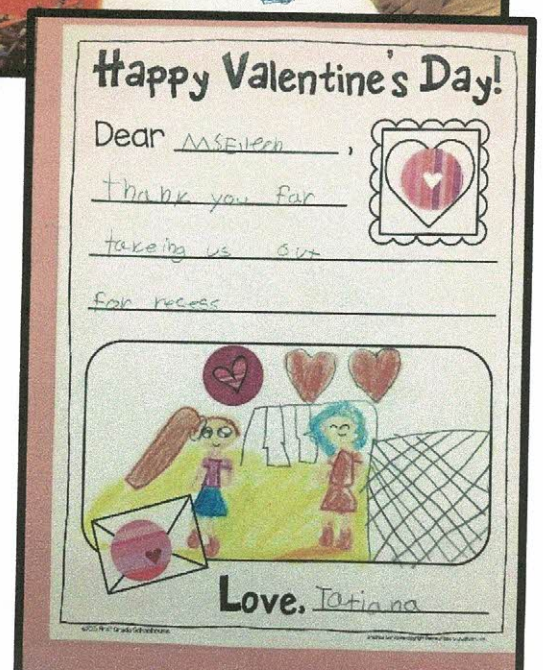 Happy Valentine's Day!
Dear MsEileen,
thank you for
takeing us out
for recess
Love, Tatiana